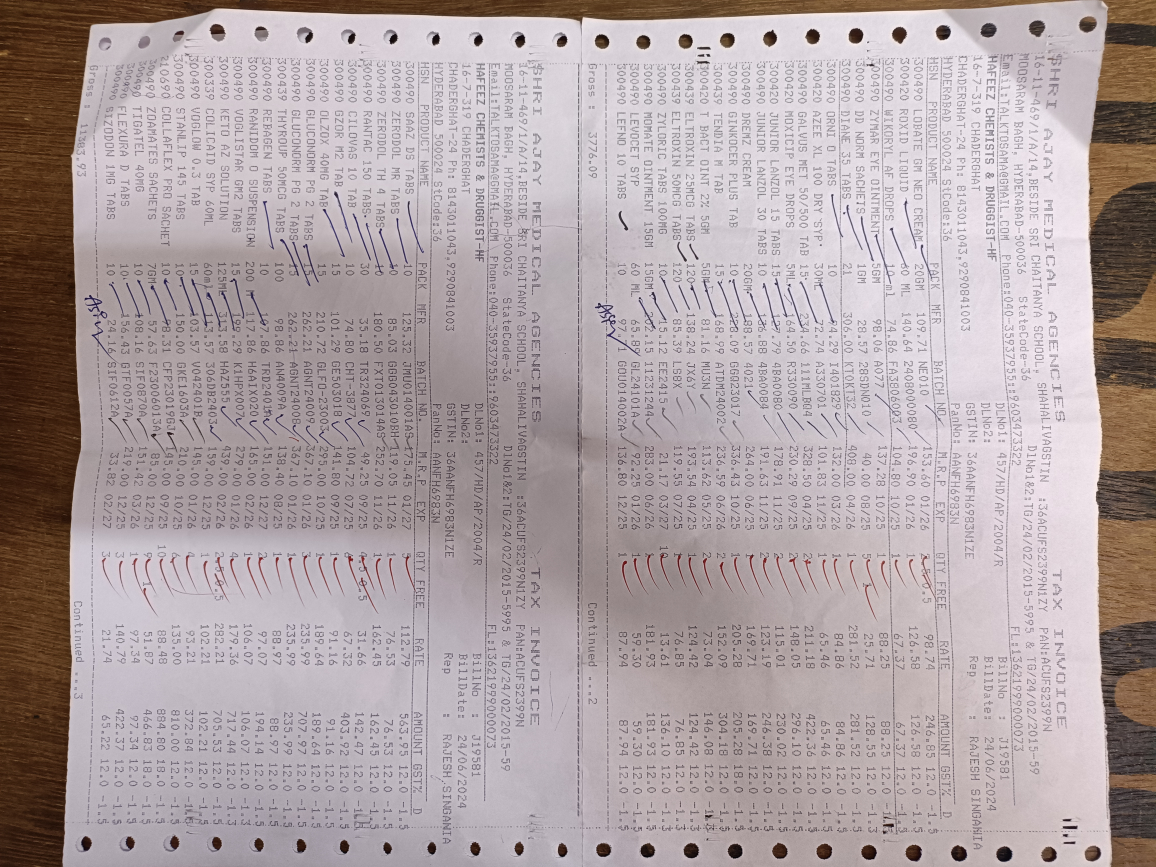 SHRI AJAY MEDICAL AGENCIES TAX INVOICE
16-11-469/1/A/14,BESIDE SRI CHAITANYA SCHOOL, SHAHALIVAGSTIN :36ACUFS2399N1ZY PAN:ACUFS2399N
MOOSARAM BAGH, HYDERABAD-500036 StateCode-36 DlNo1&2:TG/24/02/2015-5995 & TG/24/02/2015-59
Email:TALKTOSAMA@GMAIL.COM Phone:040-35937955::9603473322 FL:13621999000073
HAFEEZ CHEMISTS & DRUGGIST-HF DLNo1: 457/HD/AP/2004/R BillNo : J19581
16-7-319 CHADERGHAT DLNo2: BillDate: 24/06/2024
CHADERGHAT-24 Ph: 8143011043,9290841003 GSTIN: 36AANFH6983N1ZE Rep : RAJESH SINGANIA
HYDERABAD 500024 StCode:36 PanNo: AANFH6983N
HSN PRODUCT NAME PACK MFR BATCH NO. M.R.P EXP QTY FREE RATE AMOUNT GST% D
300490 LOBATE GM NEO CREAM 20GM 109.71 NE0110 153.60 01/26 98.74 246.85 12.0 -1.5
300420 ROXID LIQUID 60 ML 140.64 196.90 01/26 1 126.58 126.58 12.0 -1.5
300490 WIKORYL AF DROPS 10-ml 74.86 104.80 10/25 1 67.37 67.37 12.0 -1.5
300490 ZYMAR EYE OINTMENT 5GM 98.06 A077 137.28 10/25 1 88.25 88.25 12.0 -1.5
300490 DD NORM SACHETS 1GM 28.57 28SDN010 40.00 08/25 5 25.71 128.55 12.0 -1.3
300490 DIANE 35 TABS 21 306.00 KT0KT32 408.00 04/26 1 281.52 281.52 12.0 -1.5
300490 URNI D TABS 10 94.29 I401829 132.00 03/26 1 84.86 84.86 12.0 -1.5
300420 AZEE XL 100 DRY SYP. 30ML 72.74 A330701 101.83 11/25 1 65.46 65.46 12.0 -1.5
300490 GALVUS MET 50/500 TAB 15 234.66 111MLB04 328.50 04/25 2 211.18 422.36 12.0 -1.5
300490 MOXICIP EYE DROPS 5ML 164.50 R330090 230.29 09/25 2 148.05 296.10 12.0 -1.5
300490 JUNIOR LANZOL 15 TABS 15 127.79 4BA0080 178.91 11/25 2 115.01 230.02 12.0 -1.5
300490 JUNIOR LANZOL 30 TABS 10 136.88 4BA0084 191.63 11/25 2 123.19 246.38 12.0 -1.5
300490 DREMZ CREAM 20GM 188.57 4021 264.00 06/25 1 169.71 169.71 12.0 -1.5
300490 GINKOCER PLUS TAB 10 228.09 GGQ23017 336.43 10/25 1 205.28 205.28 18.0 -1.5
300490 TENDIA M TAB 15 168.99 AIDM24002 236.59 06/26 2 152.09 304.18 12.0 -1.5
300420 T BACT OINT 2% 5GM 5GM 81.16 MU3N 113.62 05/26 2 73.04 146.08 12.0 -1.5
300439 ELTROXIN 25MCG TABS 120 138.24 JX6V 193.54 04/25 1 124.42 124.42 12.0 -1.5
300439 ELTROXIN 50MCG TABS 120 85.39 LS8X 119.55 07/25 1 76.85 76.85 12.0 -1.5
300490 ZYLORIC TABS 100MG 10 15.12 EE243 21.17 03/27 10 13.61 136.10 12.0 -1.5
300490 MOMATE OINTMENT 15GM 15GM 11231244 283.00 06/25 1 181.93 181.93 12.0 -1.5
300490 LEVOCET SYP 60 ML 65.89 GL24101A 92.25 01/26 1 59.30 59.30 12.0 -1.5
300490 LEFNO 10 TABS 10 97.71 136.80 12/25 1 87.94 87.94 12.0 -1.5
Gross : 3776.09 Continued ...2
SHRI AJAY MEDICAL AGENCIES TAX INVOICE
16-11-469/1/A/14,BESIDE SRI CHAITANYA SCHOOL, SHAHALIVAGSTIN :36ACUFS2399N1ZY PAN:ACUFS2399N
MOOSARAM BAGH, HYDERABAD-500036 StateCode-36 DlNo1&2:TG/24/02/2015-5995 & TG/24/02/2015-59
Email:TALKTOSAMA@GMAIL.COM Phone:040-35937955::9603473322 FL:13621999000073
HAFEEZ CHEMISTS & DRUGGIST-HF DLNo1: 457/HD/AP/2004/R BillNo : J19581
16-7-319 CHADERGHAT DLNo2: BillDate: 24/06/2024
CHADERGHAT-24 Ph: 8143011043,9290841003 GSTIN: 36AANFH6983N1ZE Rep : RAJESH SINGANIA
HYDERABAD 500024 StCode:36 PanNo: AANFH6983N
HSN PRODUCT NAME PACK MFR BATCH NO. M.R.P EXP QTY FREE RATE AMOUNT GST% D
300490 SAAZ DS TABS 10 125.32 175.45 01/27 5 112.79 563.95 12.0 -1.5
300490 ZERODOL MR TABS 10 85.03 119.05 11/25 1 76.53 76.53 12.0 -1.5
300490 ZERODOL TH 4 TABS 10 180.50 262.70 11/25 1 162.45 162.45 12.0 -1.5
300490 RANTAC 150 TABS 30 35.18 FRX324069 49.25 09/25 31.66 142.47 12.0 -1.5
300490 CILOVAS TABS 10 74.80 104.72 07/25 67.32 403.92 12.0 -1.5
300490 GZOR M2 TAB 10 101.29 141.80 09/25 1 91.16 91.16 12.0 -1.5
300490 OLZOX 40MG TAB 15 210.72 295.00 10/25 1 189.64 189.64 12.0 -1.5
300490 GLUCONORM PG 2 TABS 15 262.21 AGNT24009 367.10 01/26 3 235.99 707.97 12.0 -1.5
300490 GLUCONORM PG 2 TABS 15 262.21 AGNT24008 367.10 01/26 1 235.99 235.99 12.0 -1.5
300439 THYROUP 50MCG TABS 100 98.86 138.40 08/25 1 88.97 88.97 12.0 -1.5
300490 REBAGEN TABS 10 107.86 151.00 12/27 2 97.07 194.14 12.0 -1.5
300490 RANIDOM O SUSPENSION 200 M 117.86 165.00 12/25 1 106.07 106.07 12.0 -1.5
300490 VOGLISTAR GM2 TABS 15 199.29 279.00 01/26 4 179.36 717.44 12.0 -1.3
300490 KETO AZ SOLUTION 125ML 313.58 HAZ55 439.00 01/26 282.21 705.53 12.0 -1.5
300339 COLICAID SYP 60ML 60ml 113.57 159.00 01/26 1 102.21 102.21 12.0 -1.5
300490 VOGLOW 0.3 TAB 15 103.57 VO42401B 145.00 01/26 4 93.21 372.84 12.0 -1.5
300490 STANLIP 145 TABS 10 150.00 BKE1603A 210.00 11/25 6 135.00 810.00 12.0 -1.5
210690 COLLAFLEX PRO SACHET 10 98.31 CFP23019GJ 145.00 09/25 10 88.48 884.80 18.0 -1.5
300490 ZDAMATES SACHETS 7GM 57.63 85.00 12/25 9 51.87 466.83 18.0 -1.5
300490 TIGATEL 40MG 10 108.16 SIF0870A 151.42 03/26 1 97.34 97.34 12.0 -1.5
300490 FLEXURA D TABS 10 156.43 GTF0057A 219.00 12/25 3 140.79 422.37 12.0 -1.5
300490 SIZODON 1MG TABS 10 24.16 SIF0612A 33.82 02/27 3 21.74 65.22 12.0 -1.5
Gross : Continued ...3